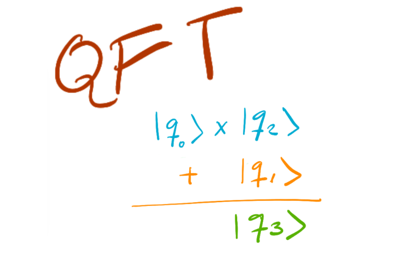 QFT
|q₀⟩ x |q₂⟩
+ |q₁⟩
|q₃⟩